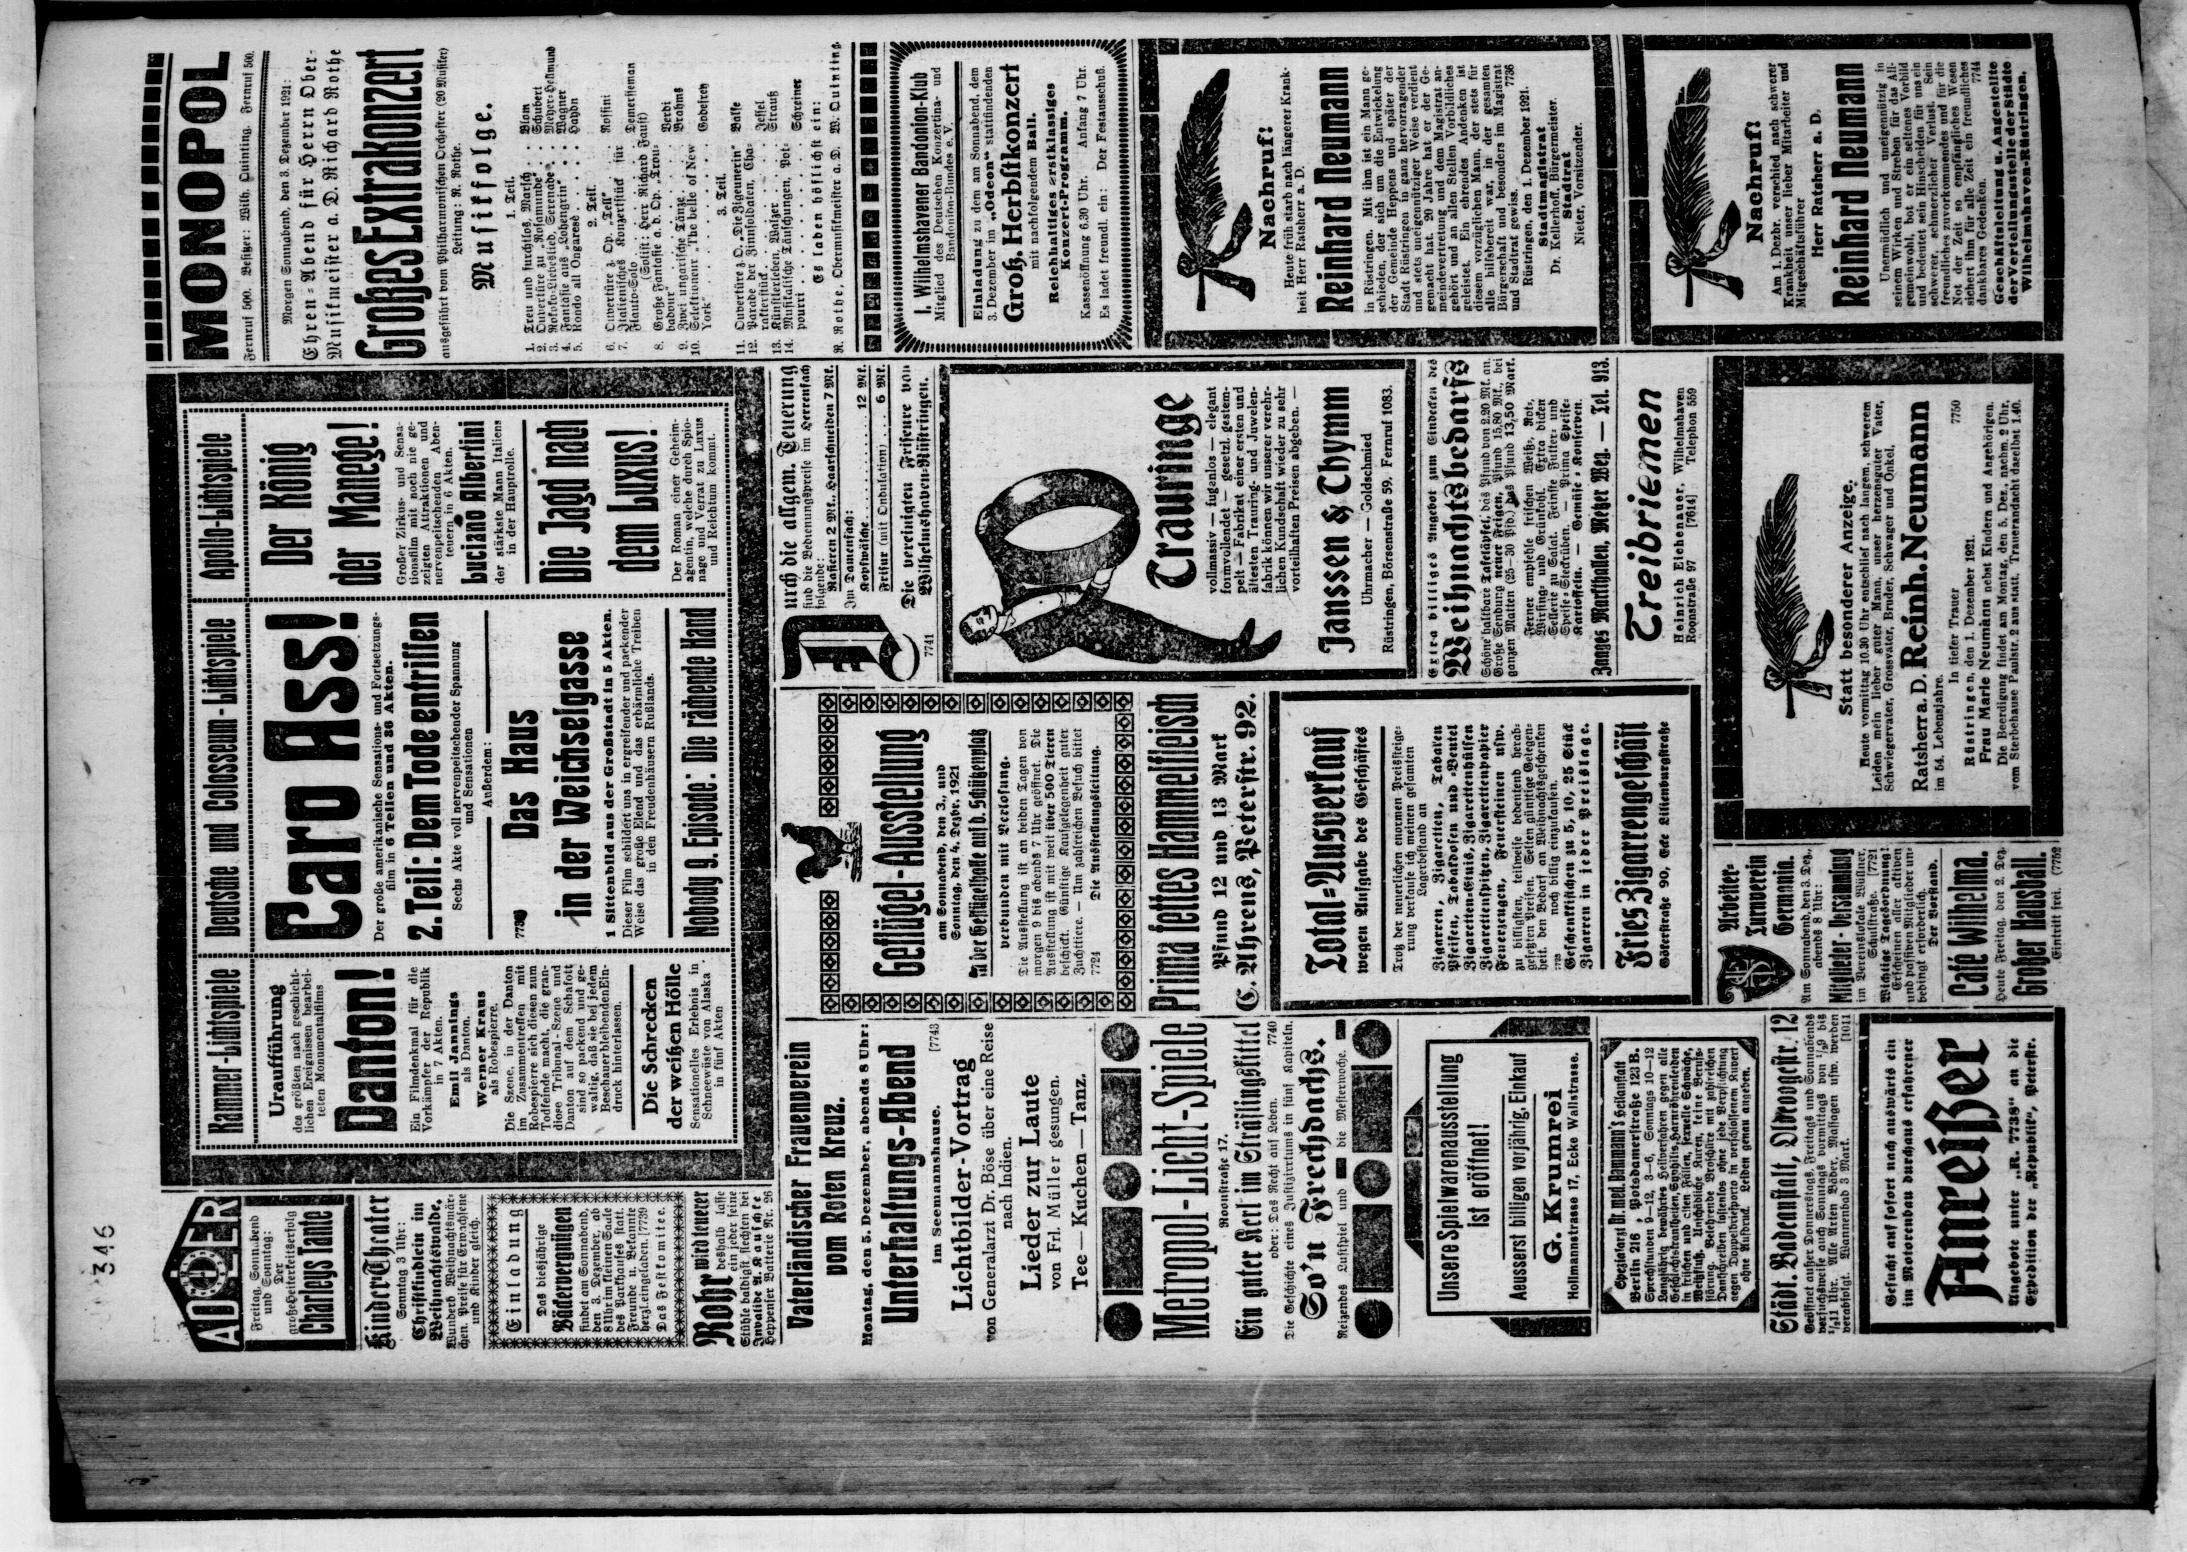 346
ADLER
Freitag, Sonnabend
und Sonntag:
Der
große Heiterkeitserfolg
Charleys Tante
KinderTheater
Sonntag 3 Uhr:
Christkindlein im
Weihnachtswalde.
Wunderb. Weihnachtsmär-
chen. Preise für Erwachsene
und Kinder gleich.
Einladung
Das diesjährige
Bäckervergnügen
findet am Sonnabend,
den 3. Dezember, ab
8 Uhr im kleinen Saale
des Parkhauses statt.
Freunde u. Bekannte
herzl. eingeladen. [7739
Das Festkomitee.
Rohr wird teurer
deshalb lasse
ein jeder seine
Stühle baldigst flechten bei
Invalide A. Krause
Heppenser Batterie Nr. 26
Kammer-Lichtspiele
Uraufführung
des größten nach geschicht-
lichen Ereignissen bearbei-
teten Monumentalfilms
Danton!
Ein Filmdenkmal für die
Vorkämpfer der Republik
in 7 Akten.
Emil Jannings
als Danton.
Werner Kraus
als Robespierre.
Die Szene, in der Danton
im Zusammentreffen mit
Robespierre sich diesen zum
Todfeinde macht, die gran-
diose Tribunal-Szene und
Danton auf dem Schafott
sind so packend und ge-
waltig, daß sie bei jedem
Beschauer bleibenden Ein-
druck hinterlassen.
Die Schrecken
der weißen Hölle
Sensationelles Erlebnis in
Schneewüste von Alaska
in fünf Akten
Deutsche und Colosseum-Lichtspiele
Caro Ass!
Der große amerikanische Sensations- und Fortsetzungs-
film in 6 Teilen und 36 Akten.
2. Teil: Dem Tode entrissen
Sechs Akte voll nervenpeitschender Spannung
und Sensationen
Außerdem:
Das Haus
in der Weichselgasse
1 Sittenbild aus der Großstadt in 5 Akten.
Dieser Film schildert uns in ergreifender und packender
Weise das große Elend und das erbärmliche Treiben
in den Freudenhäusern Rußlands.
Nobody 9. Episode: Die rächende Hand
Apollo-Lichtspiele
Der König
der Manege!
Großer Zirkus- und Sensa-
tionsfilm mit noch nie ge-
zeigten Attraktionen und
nervenpeitschenden Aben-
teuern in 6 Akten.
Luciano Albertini
der stärkste Mann Italiens
in der Hauptrolle.
Die Jagd nach
dem Luxus!
Der Roman einer Geheim-
agentin, welche durch Spio-
nage und Verrat zu Luxus
und Reichtum kommt.
MONOPOL
Fernruf 500. Besitzer: Wilh. Quinting. Fernruf 500.
Morgen Sonnabend, den 3. Dezember 1921:
Ehren-Abend für Herrn Ober-
Musikmeister a. D. Richard Rothe
Großes Extrakonzert
ausgeführt vom Philharmonischen Orchester (20 Musiker)
Leitung: R. Rothe.
Musikfolge.
1. Teil.
1. Treu und furchtlos, Marsch . . Blom
2. Ouvertüre zu „Rosamunde“ . . Schubert
3. Rokoko-Liebeslied, Serenade . Meyer-Helmund
4. Fantasie aus „Lohengrin“ . . Wagner
5. Rondo all Ongarese . . . Haydn
2. Teil.
6. Ouvertüre z. Op. „Tell“ . . . Rossini
7. Italienisches Konzertstück für
Flauto-Solo . . . Demersseman
(Solist: Herr Richard Faust)
8. Große Fantasie a. d. Op. „Trou-
badour“ . . . Verdi
9. Zwei ungarische Tänze . . . Brahms
10. Selektionent „The belle of New
York“ . . . Godefrey
3. Teil.
11. Ouvertüre z. O. „Die Zigeunerin“ Balfe
12. Parade der Zinnsoldaten, Cha-
rakterstück . . . Jessel
13. Künstlerleben, Walzer . . . Strauß
14. Musikalische Täuschungen, Pot-
pourri . . . Schreiner
Es laden höflichst ein:
R. Rothe, Obermusikmeister a. D. W. Quinting.
Vaterländischer Frauenverein
vom Roten Kreuz.
Montag, den 5. Dezember, abends 8 Uhr:
Unterhaltungs-Abend
im Seemannshause. [7743
Lichtbilder-Vortrag
von Generalarzt Dr. Böse über eine Reise
nach Indien.
Lieder zur Laute
von Frl. Müller gesungen.
Tee — Kuchen — Tanz.
Metropol-Licht-Spiele
Roonstraße 17.
Ein guter Kerl im Sträflingskittel
oder: Das Recht auf Leben. 7740
Die Geschichte eines Justizirrtums in fünf Kapiteln.
So'n Frechdachs.
Reizendes Lustspiel und die Mesterwoche.
Unsere Spielwarenausstellung
ist eröffnet!
Aeusserst billigen vorjährig. Einkauf
G. Krumrei
Hollmannstrasse 17, Ecke Wallstrasse.
Spezialarzt Dr. med. Dammann's Heilanstalt
Berlin 216, Potsdamerstraße 123 B.
Sprechstunden 9—12, 3—6, Sonntags 10—12
Langjährig bewährtes Heilverfahren gegen alle
Geschlechtskrankheiten, Syphilis, Harnröhrenleiden
in frischen und alten Fällen, sexuelle Schwäche,
Weißfluß. Unschädliche Kuren, keine Berufs-
störung. Belehrende Broschüre mit zahlreichen
Dankschreiben kostenlos ohne jede Verpflichtung
gegen Doppelbriefporto in verschlossenem Kuvert
ohne Aufdruck. Leiden genau angeben.
Städt. Badeanstalt, Oldeoogestr. 12
Geöffnet außer Donnerstags, Freitags und Sonnabends
versuchsweise auch Sonntags vormittags von 1/29 bis
1/211 Uhr. Alle Arten Bäder. Massagen usw. werden
verabfolgt. Wannenbad 3 Mark. [1011
Gesucht auf sofort nach auswärts ein
im Motorenbau durchaus erfahrener
Anreißer
Angebote unter „R. 7738“ an die
Expedition der „Republik“, Peterstr.
Geflügel-Ausstellung
am Sonnabend, den 3., und
Sonntag, den 4. Dezbr. 1921
in der Geflügelhalle auf d. Schützenplatz
verbunden mit Verlosung.
Die Ausstellung ist an beiden Tagen von
morgen 9 bis abends 7 Uhr geöffnet. Die
Ausstellung ist mit weit über 500 Tieren
beschickt. Günstige Kaufgelegenheit guter
Zuchttiere. — Um zahlreichen Besuch bittet
7724 Die Ausstellungsleitung.
Prima fettes Hammelfleisch
Pfund 12 und 13 Mark
C. Ahrens, Peterstr. 92.
Total-Ausverkauf
wegen Aufgabe des Geschäftes
Trotz der neuerlichen enormen Preissteige-
rung verkaufe ich meinen gesamten
Lagerbestand an
Zigarren, Zigaretten, Tabaken
Pfeifen, Tabakdosen und -Beutel
Zigaretten-Etuis, Zigarettenhülsen
Zigarettenspitzen, Zigarettenpapier
Feuerzeugen, Feuersteinen usw.
zu billigsten, teilweise bedeutend herab-
gesetzten Preisen. Selten günstige Gelegen-
heit, den Bedarf an Weihnachtsgeschenken
noch billig einzukaufen.
Geschenkkistchen zu 5, 10, 25 Stück
Zigarren in jeder Preislage.
Fries Zigarrengeschäft
Göterstraße 90, Ecke Lilienburgstraße
Arbeiter-
Turnverein
Germania.
Am Sonnabend, den 3. Dez.,
abends 8 Uhr:
Mitglieder-Versammlung
im Vereinslokale Wüstner,
Schulstraße. [7721
Wichtige Tagesordnung!
Erscheinen aller aktiven
und passiven Mitglieder un-
bedingt erforderlich.
Der Vorstand.
Café Wilhelma.
Heute Freitag, den 2. Dez.
Großer Hausball.
Eintritt frei. (7752
Durch die allgem. Teuerung
sind die Bedienungspreise im Herrenfach
folgende:
Rasieren 2 Mk., Haarschneiden 7 Mk.
Im Damenfach:
Kopfwäsche . . . 12 Mk.
Frisur (mit Ondulation) . . . 6 Mk.
Die vereinigten Friseure von
7741 Wilhelmshaven-Rüstringen.
Trauringe
vollmassiv — fugenlos — elegant
formvollendet — gesetzl. gestem-
pelt — Fabrikat einer ersten und
ältesten Trauring- und Juwelen-
fabrik können wir unserer verehr-
lichen Kundschaft wieder zu sehr
vorteilhaften Preisen abgeben. —
Janssen & Thymm
Uhrmacher — Goldschmied
Rüstringen, Börsenstraße 59, Fernruf 1083.
Extra billiges Angebot zum Eindecken des
Weihnachtsbedarfs
Schöne haltbare Tafeläpfel, das Pfund von 2.20 Mk. an.
Große Sendung neuer Feigen, Pfund 15.80 Mk., bei
ganzen Matten (25—30 Pfd.) das Pfund 13,50 Mark.
Ferner empfehle frischen Weiß-, Rot-,
Wirsing- und Grünkohl. Extra dicken
Sellerie zu Salat. Feinste Futter- und
Speise-Steckrüben. — Prima Speise-
Kartoffeln. — Gemüse-Konserven.
Janzes Markthallen, Metzer Weg. — Tel. 913.
Treibriemen
Heinrich Eichenauer, Wilhelmshaven
Roonstraße 97 [7614] Telephon 559
Statt besonderer Anzeige.
Heute vormittag 10.30 Uhr entschlief nach langem, schwerem
Leiden mein lieber guter Mann, unser herzensguter Vater,
Schwiegervater, Grossvater, Bruder, Schwager und Onkel,
Ratsherr a. D. Reinh. Neumann
im 54. Lebensjahre.
In tiefer Trauer 7750
Rüstringen, den 1. Dezember 1921.
Frau Marie Neumann nebst Kindern und Angehörigen.
Die Beerdigung findet am Montag, den 5. Dez., nachm. 2 Uhr,
vom Sterbehause Paulstr. 2 aus statt. Trauerandacht daselbst 1.40.
I. Wilhelmshavener Bandonion-Klub
Mitglied des Deutschen Konzertina- und
Bandonion-Bundes e. V.
Einladung zu dem am Sonnabend, dem
3. Dezember im „Odeon“ stattfindenden
Groß. Herbstkonzert
mit nachfolgendem Ball.
Reichhaltiges erstklassiges
Konzert-Programm.
Kassenöffnung 6.30 Uhr. Anfang 7 Uhr.
Es ladet freundl. ein: Der Festausschuß.
Nachruf!
Heute früh starb nach längerer Krank-
heit Herr Ratsherr a. D.
Reinhard Neumann
in Rüstringen. Mit ihm ist ein Mann ge-
schieden, der sich um die Entwickelung
der Gemeinde Heppens und später der
Stadt Rüstringen in ganz hervorragender
und stets uneigennütziger Weise verdient
gemacht hat. 20 Jahre hat er der Ge-
meindevertretung und dem Magistrat an-
gehört und an allen Stellen Vorbildliches
geleistet. Ein ehrendes Andenken ist
diesem vorzüglichen Mann, der stets für
alle hilfsbereit war, in der gesamten
Bürgerschaft und besonders im Magistrat
und Stadtrat gewiss. 7736
Rüstringen, den 1. Dezember 1921.
Stadtmagistrat
Dr. Kellerhoff, Bürgermeister.
Stadtrat
Nieter, Vorsitzender.
Nachruf!
Am 1. Dezbr. verschied nach schwerer
Krankheit unser lieber Mitarbeiter und
Mitgeschäftsführer
Herr Ratsherr a. D.
Reinhard Neumann
Unermüdlich und uneigennützig in
seinem Wirken und Streben für das All-
gemeinwohl, bot er ein seltenes Vorbild
und bedeutet sein Hinscheiden für uns ein
schwerer, schmerzlicher Verlust. Sein
freundliches zuvorkommendes und für die
Not der Zeit so empfängliches Wesen
sichert ihm für alle Zeit ein freundliches
dankbares Gedenken. 7744
Geschäftsleitung u. Angestellte
der Verteilungsstelle der Städte
Wilhelmshaven-Rüstringen.